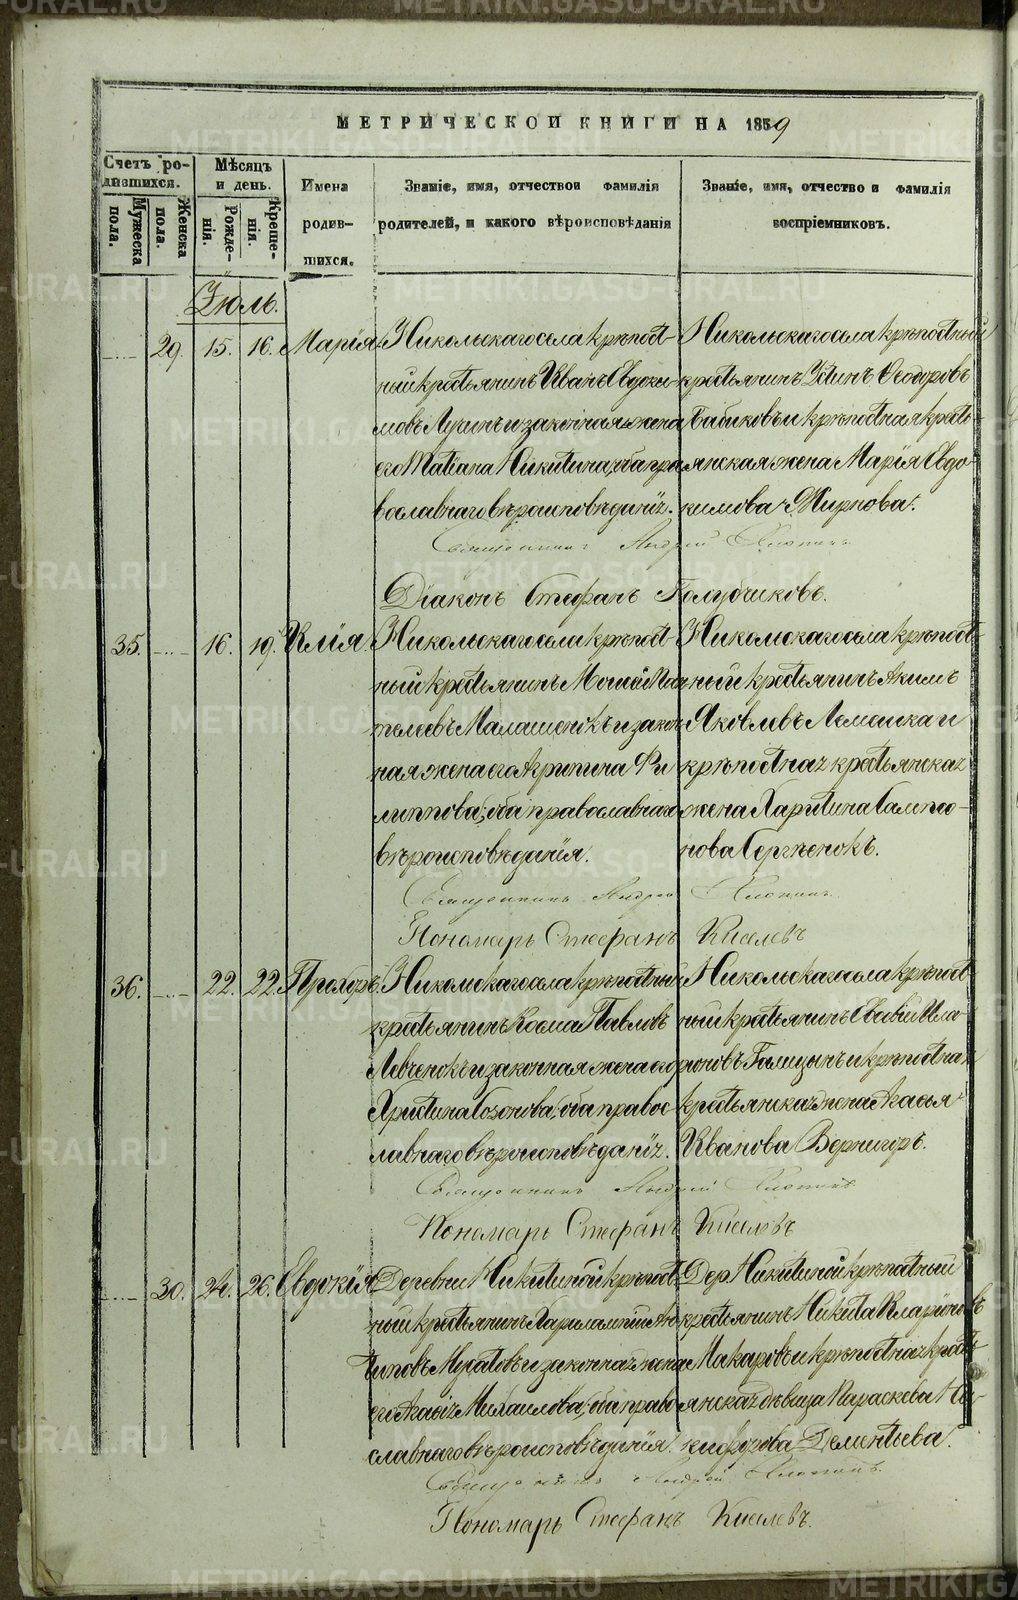 МЕТРИЧЕСКОЙ КНИГИ НА 1859
Счетъ ро-
дившихся.
Мѣсяцъ
и день.
Имена
родив-
шихся.
Званіе, имя, отчество и фамилія
родителей, и какого вѣроисповѣданія
Званіе, имя, отчество и фамилія
воспріемниковъ.
Мужеска
пола.
Женска
пола.
Рожде-
нія.
Креще-
нія.
Іюль.
29. 15. 16. Марія
Никольскаго села крѣпост-
ный крестьянинъ Иванъ Евдоки-
мовъ Лучинъ и законная жена
его Татіана Никитина, оба пра
вославнаго вѣроисповѣданія.
Никольскаго села крѣпостный
крестьянинъ Устинъ Ѳеодоровъ
Бабиковъ и крѣпостная кресть-
янская жена Марія Евдо-
кимова Жирнова.
Священникъ Андрей
Діаконъ Стефанъ Голубчиковъ.
35. 16. 19. Илія
Никольскаго села крѣпост-
ный крестьянинъ Моисей Пан
телеевъ Малашенокъ и закон
ная жена его Агрипина Фи
липпова, оба православнаго
вѣроисповѣданія.
Никольскаго села крѣпост-
ный крестьянинъ Акимъ
Яковлевъ Лемешка и
крѣпостная крестьянская
жена Харитина
Сергѣенокъ.
Священникъ Андрей
Пономарь Стефанъ Киселевъ
36. 22. 22. Прохоръ
Никольскаго села крѣпостный
крестьянинъ Косма Павловъ
Левченокъ и законная жена его
Христина Созонова, оба правос-
лавнаго вѣроисповѣданія.
Никольскаго села крѣпост-
ный крестьянинъ Евсевій Ила-
ріоновъ Галицынъ и крѣпостная
крестьянская жена Акасья
Иванова Вернигоръ.
Священникъ Андрей
Пономарь Стефанъ Киселевъ
30. 24. 26. Евдокія
Деревни Никитиной крѣпост-
ный крестьянинъ Харлампій Ан-
типовъ Мусатовъ и законная жена
его Михаилова, оба право
славнаго вѣроисповѣданія.
Дер. Никитиной крѣпостный
крестьянинъ Никита Иларіоновъ
Макаровъ и крѣпостная кресть-
янская дѣвица Параскева Ни-
кифорова Дементьева.
Священникъ Андрей
Пономарь Стефанъ Киселевъ.
METRIKI.GASO-URAL.RU